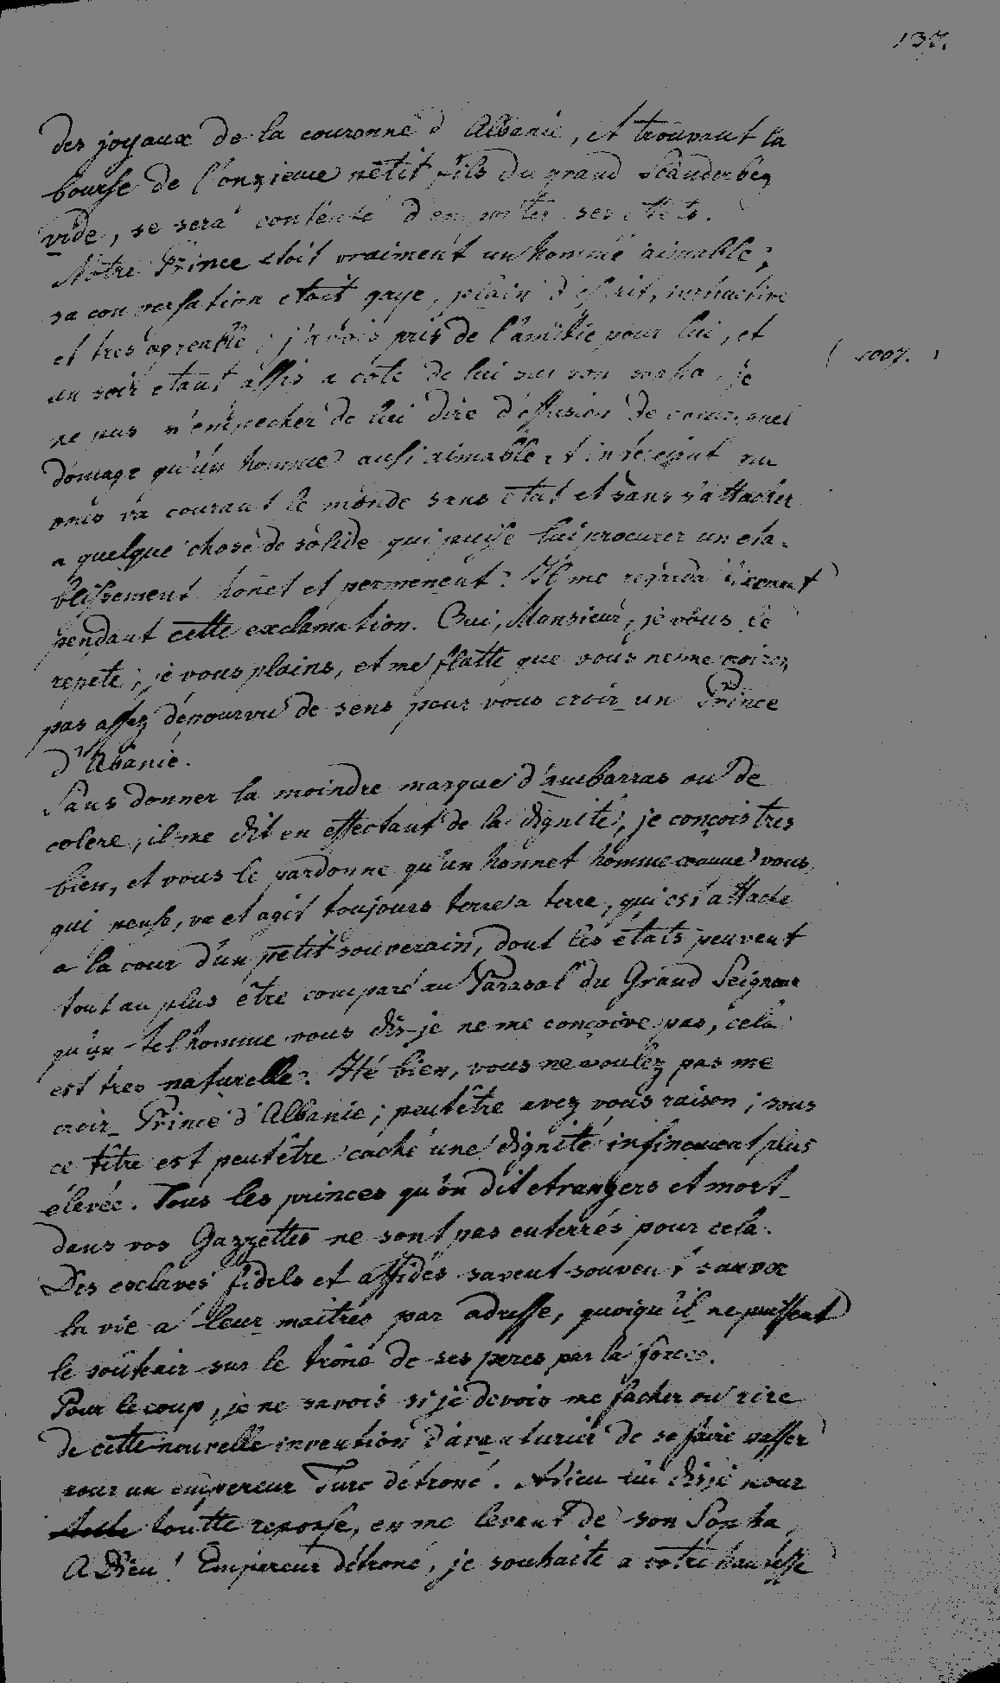 137.
des joyaux de la couronne d'Albanie, et trouvant la
bourse de l'onzieme petit fils du grand Scanderbeg
vide, se sera contenté d'emporter ses effets.
Notre Prince etoit vraiment un homme aimable;
sa conversation etoit gaye, plain d'esprit, instructive
et tres agreable; j'avois pris de l'amitie pour lui, et
( 1007. )
un soir etant assis a coté de lui sur son sopha, je
ne pus m'empecher de lui dire d'effusion de coeur, quel
domage qu'un homme aussi aimable et
va courant le monde sans etat et sans s'attacher
a quelque chose de solide qui puisse lui procurer un eta-
blissement honet et permenent? Il me regarda
pendant cette exclamation. Oui, Monsieur, je vous le
repete; je vous plains, et me flatte que vous ne me croirez
pas assez dépourvu de sens pour vous croir un Prince
d'Abanie.
Sans donner la moindre marque d'ambarras ou de
colere, il me dit en affectant de la dignité, je conçois tres
bien, et vous le pardonne qu'un honnet homme comme vous
qui pense, va et agit toujours terre a terre, qui est attaché
a la cour d'un petit souverain, dont les etats peuvent
tout au plus être comparé au Parasol du Grand Seigneur
qu'un tel homme vous dis-je ne me conçoive pas, cela
est tres naturelle. Hé bien, vous ne voulez pas me
croir Prince d'Albanie; peutêtre avez vous raison; sous
ce titre est peutêtre caché une dignité infinement plus
élevée. Tous les princes qu'on dit etrangers et mort
dans vos Gazzettes ne sont pas enterrés pour cela.
Des esclaves fidels et affidés savent souvent sauver
la vie a leur maitres par adresse, quoiqu'il ne puissent
le soutenir sur le trône de ses peres par la force.
Pour le coup, je ne savois si je devois me facher ou rire
de cette nouvelle invention d'avanturier de se faire passer
pour un empereur Turc détroné. Adieu lui disje pour
toutte reponse, en me levant de son Sopha,
A Dieu! Empereur détroné, je souhaite a votre hautesse